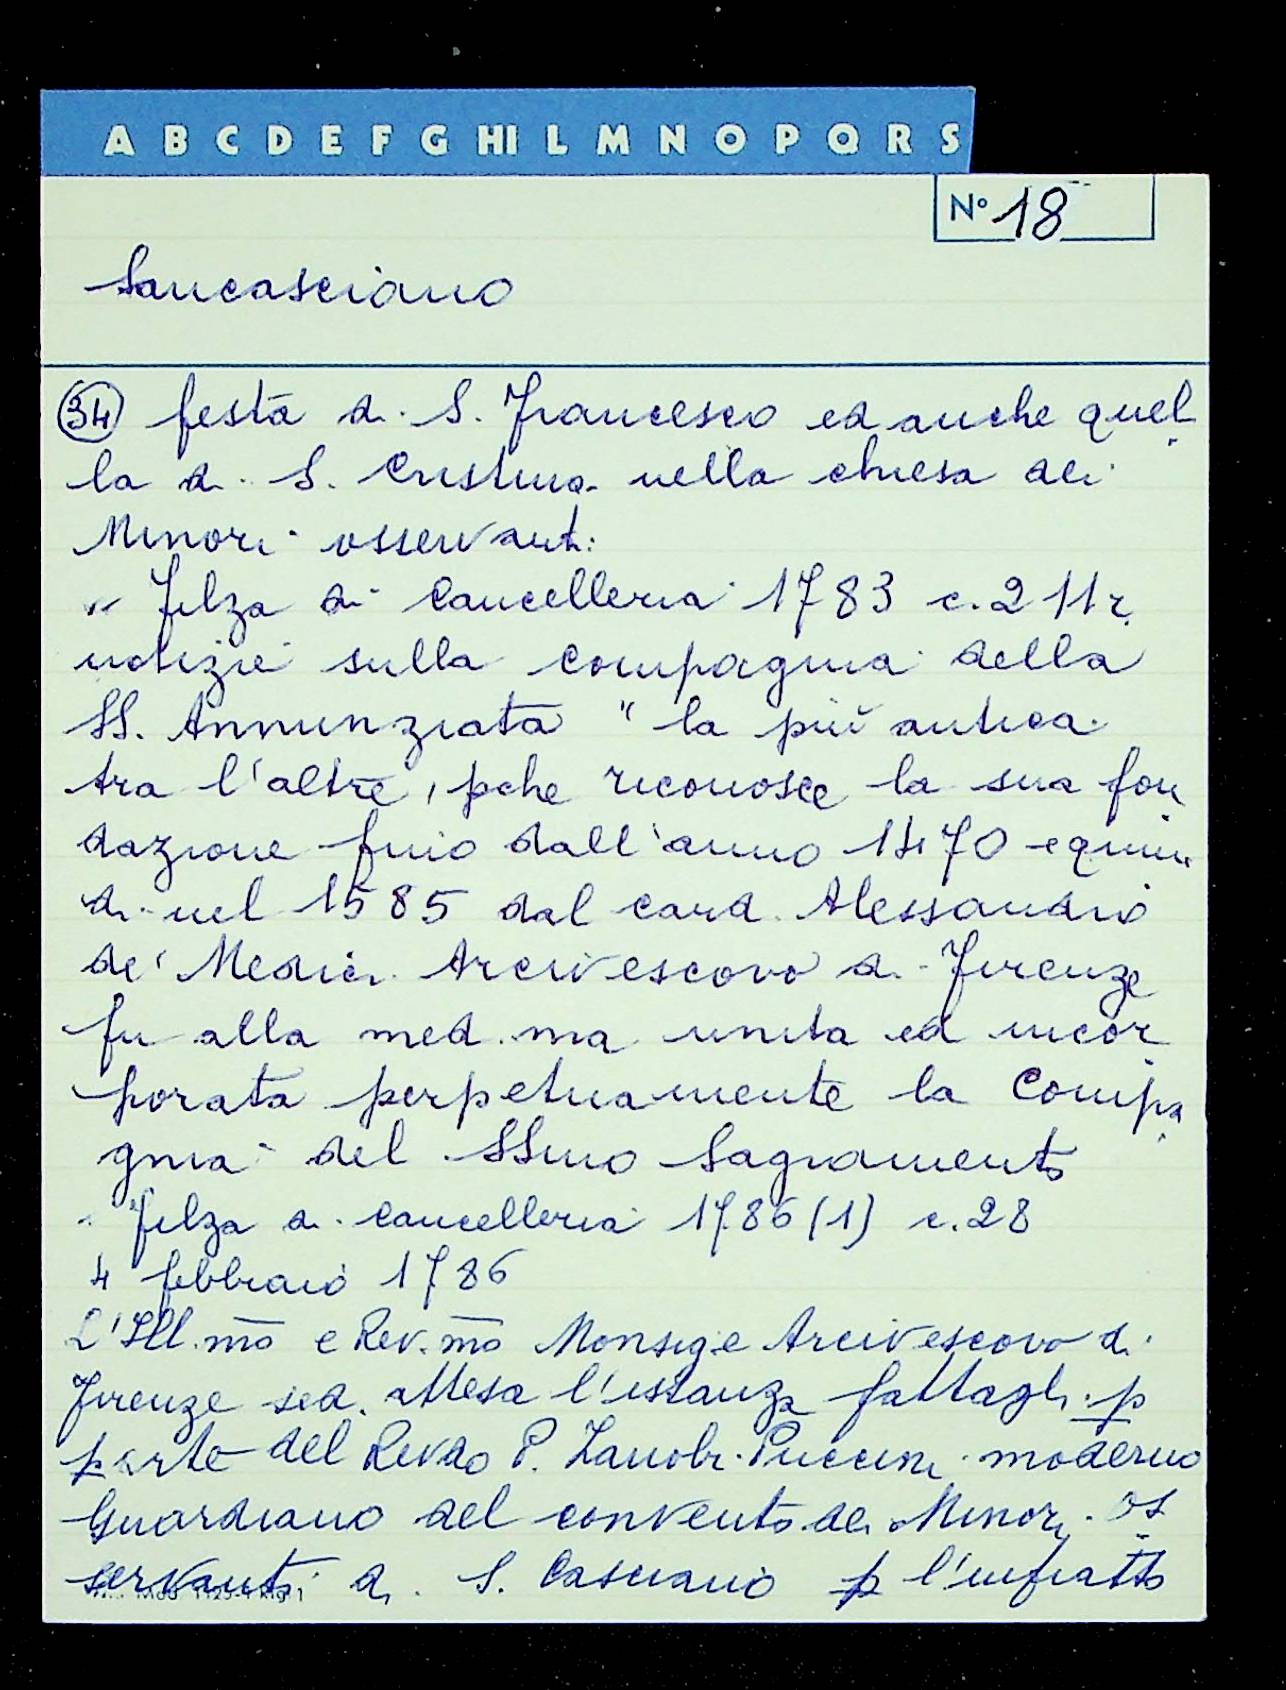 A B C D E F G HI L M N O P Q R S
N° 18
Sancasciano
34 festa di S. Francesco ed anche quel
la di S. Cristina nella chiesa dei
Minori osservanti
" Filza di Cancelleria 1783 c. 211r
notizie sulla compagnia della
SS. Annunziata " la più antica
tra l'altre, pche riconosce la sua fon
dazione fino dall'anno 1470 e quin
di nel 1585 dal card. Alessandro
de' Medici Arcivescovo di Firenze
fu alla med.ma unita ed incor
porata perpetuamente la Compa
gnia del SSmo Sagramento
" Filza di Cancelleria 1786 (1) c. 28
4 febbraio 1786
L'Ill.mo e Rev.mo Monsig.e Arcivescovo di
Firenze sed. attesa l'istanza fattagli p
parte del Revdo P. Zanobi Puccini moderno
Guardiano del convento dei Minori Os
servanti di S. Casciano p l'infratto